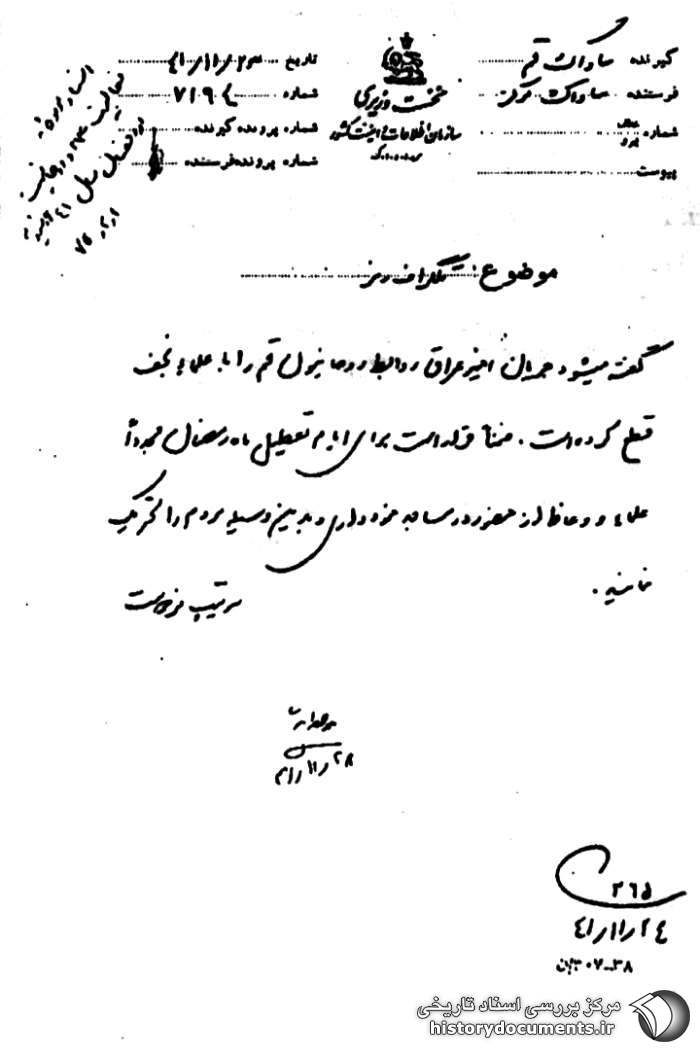 گیرنده ساواک قم
فرستنده ساواک مرکز
شماره
پیوست
نخست وزیری
سازمان اطلاعات و امنیت کشور
س.ا.و.ا.ک
تاریخ ۴۱/۱۱/۲۳
شماره ۷۱۹۴
شماره پرونده گیرنده
شماره پرونده فرستنده
موضوع: تلگراف رمز
گفته میشود جریان اخیر عراق روابط روحانیون قم را با علماء نجف
قطع کرده است. ضمناً قرار است برای ایام تعطیل ماه رمضان مجدداً
علماء و وعاظ از حضور در مساجد خودداری و بدین وسیله مردم را تحریک
نمایند.
۴۱/۱۱/۲۸
۲۶۵
۴۱/۱۱/۲۴
۳۸-۳۰۷
مرکز بررسی اسناد تاریخی
historydocuments.ir